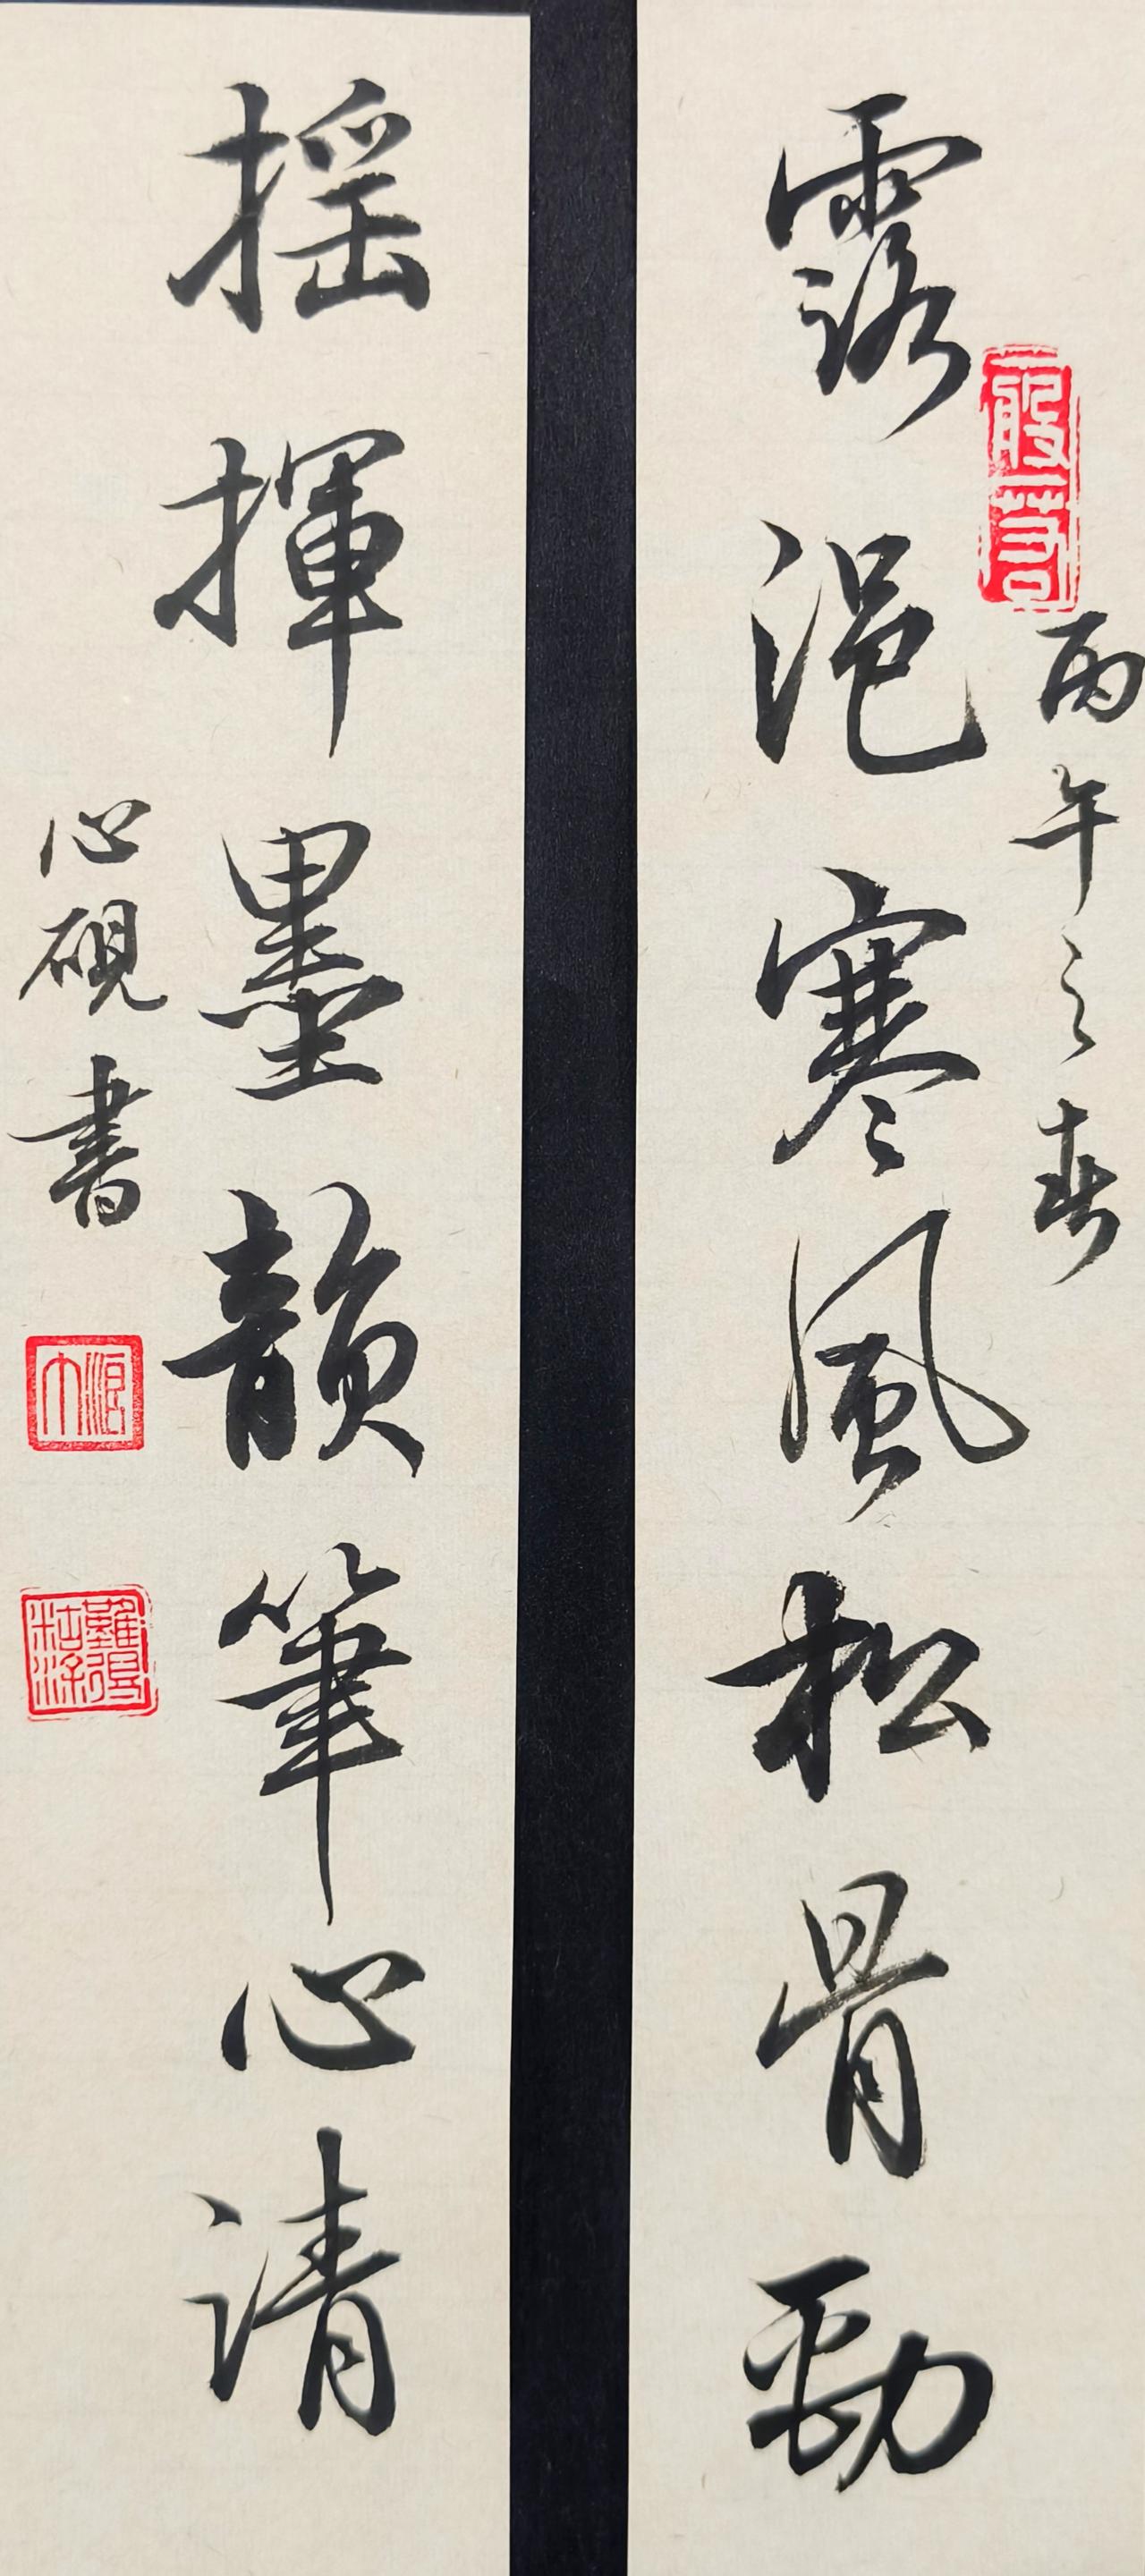 丙午之春
露浥寒風松骨勁
摇揮墨韻筆心清
心硯書